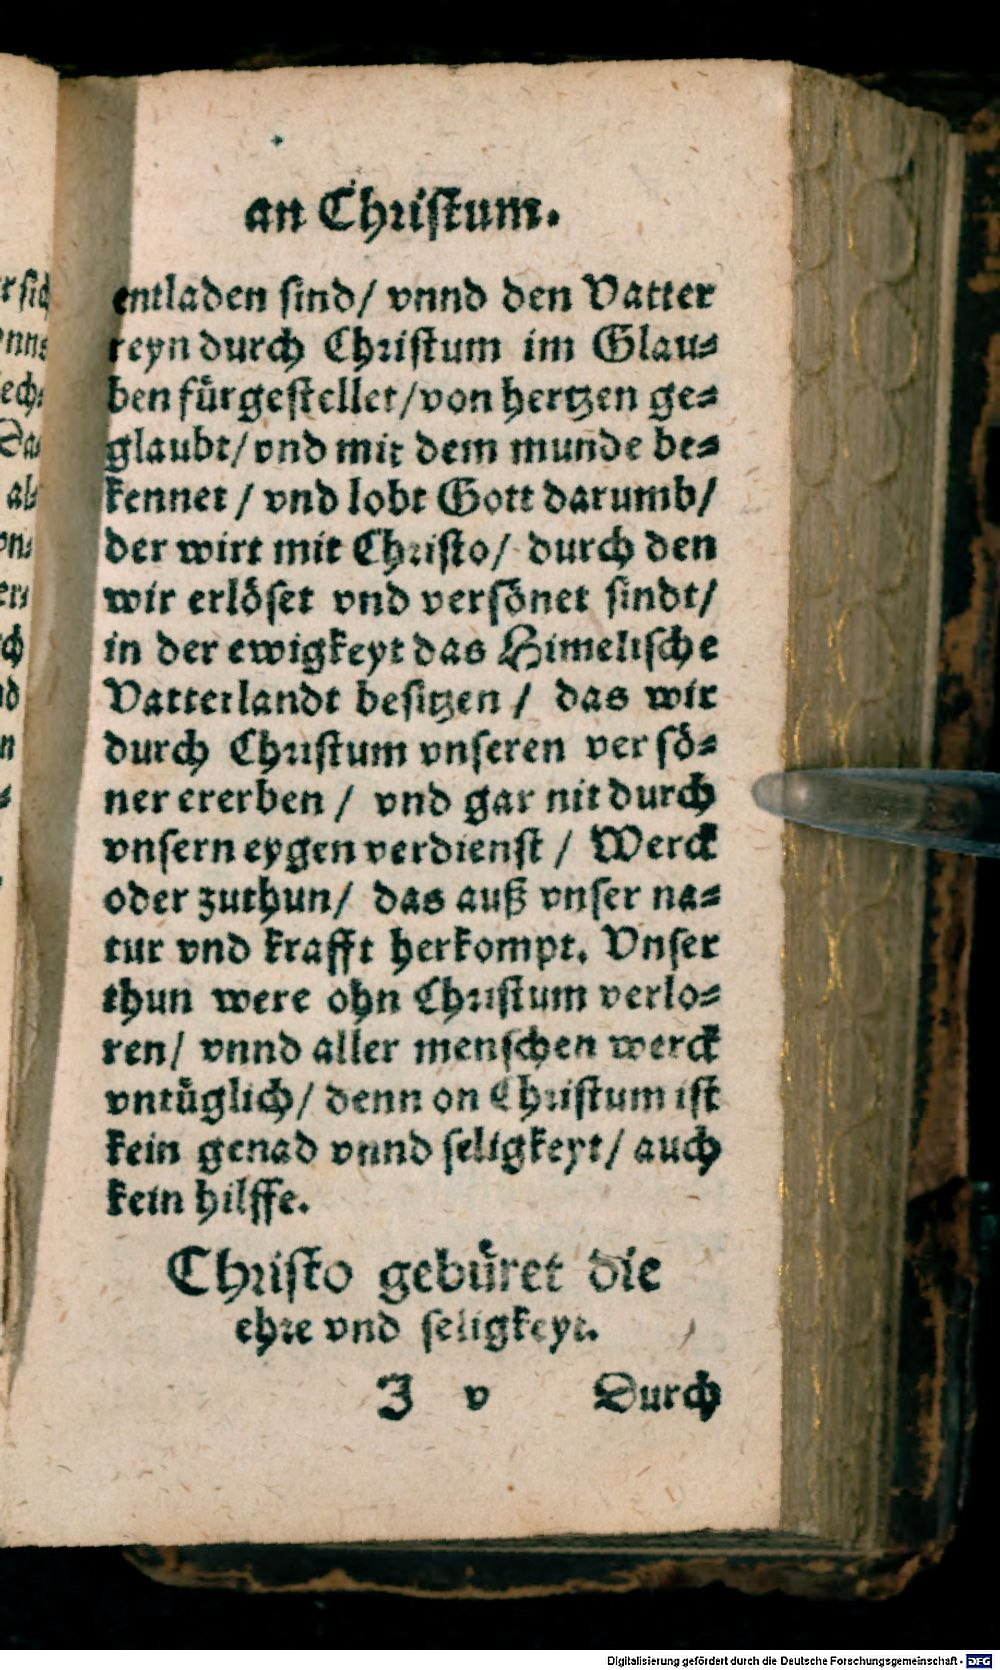 an Christum.
entladen sind/ vnnd den Vatter
reyn durch Christum im Glau⸗
ben fürgestellet/von hertzen ge⸗
glaubt/vnd mit dem munde be⸗
kennet / vnd lobt Gott darumb/
der wirt mit Christo/ durch den
wir erlöset vnd versönet sindt/
in der ewigkeyt das Himelische
Vatterlandt besitzen / das wir
durch Christum vnseren versö⸗
ner ererben / vnd gar nit durch
vnsern eygen verdienst / Werck
oder zuthun/ das auß vnser na⸗
tur vnd krafft herkompt. Vnser
thun were ohn Christum verlo⸗
ren/ vnnd aller menschen werck
vntüglich/ denn on Christum ist
kein genad vnnd seligkeyt/ auch
kein hilffe.
Christo gebüret die
ehre vnd seligkeyt.
J v Durch
Digitalisierung gefördert durch die Deutsche Forschungsgemeinschaft - DFG